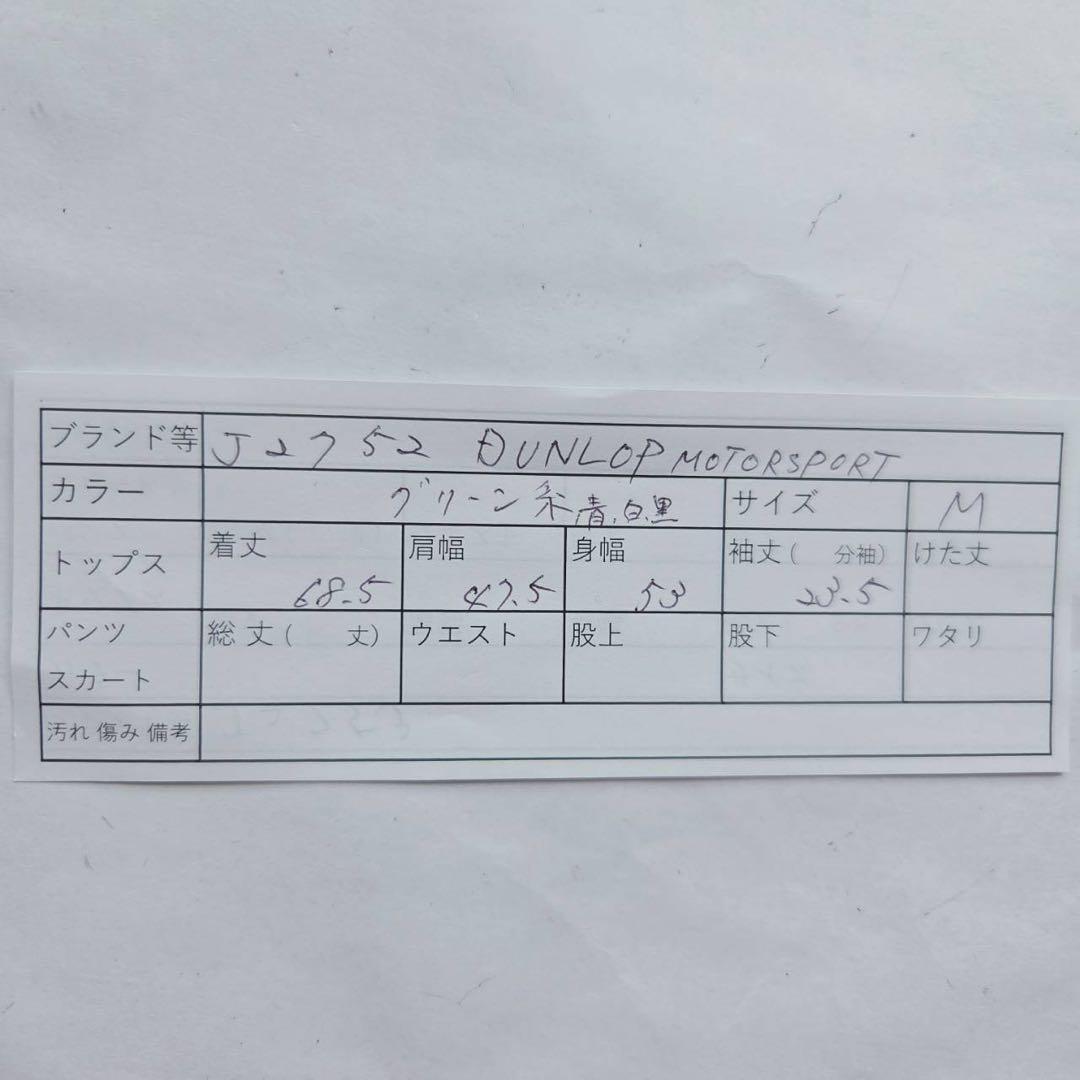 ブランド等 J2752 DUNLOP MOTORSPORT
カラー グリーン系 青、白、黒 サイズ M
トップス 着丈 68.5 肩幅 47.5 身幅 53 袖丈( 分袖) 23.5 けた丈
パンツ スカート 総丈( 丈) ウエスト 股上 股下 ワタリ
汚れ 傷み 備考